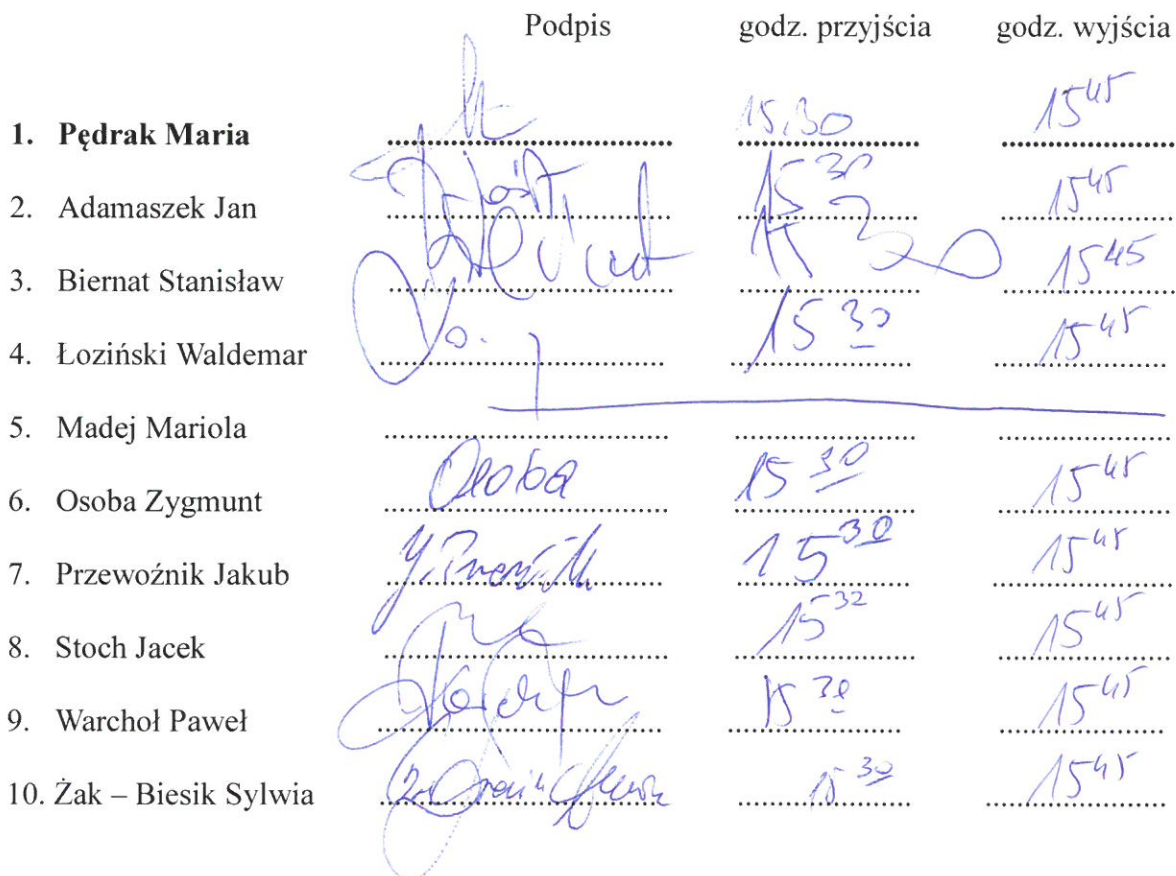 Podpis godz. przyjścia godz. wyjścia
1. Pędrak Maria 15.30 15 45
2. Adamaszek Jan 15 30 15 45
3. Biernat Stanisław 15 30 15 45
4. Łoziński Waldemar 15 30 15 45
5. Madej Mariola
6. Osoba Zygmunt Osoba 15 30 15 45
7. Przewoźnik Jakub 15 30 15 45
8. Stoch Jacek 15 32 15 45
9. Warchoł Paweł 15 30 15 45
10. Żak – Biesik Sylwia 15 30 15 45